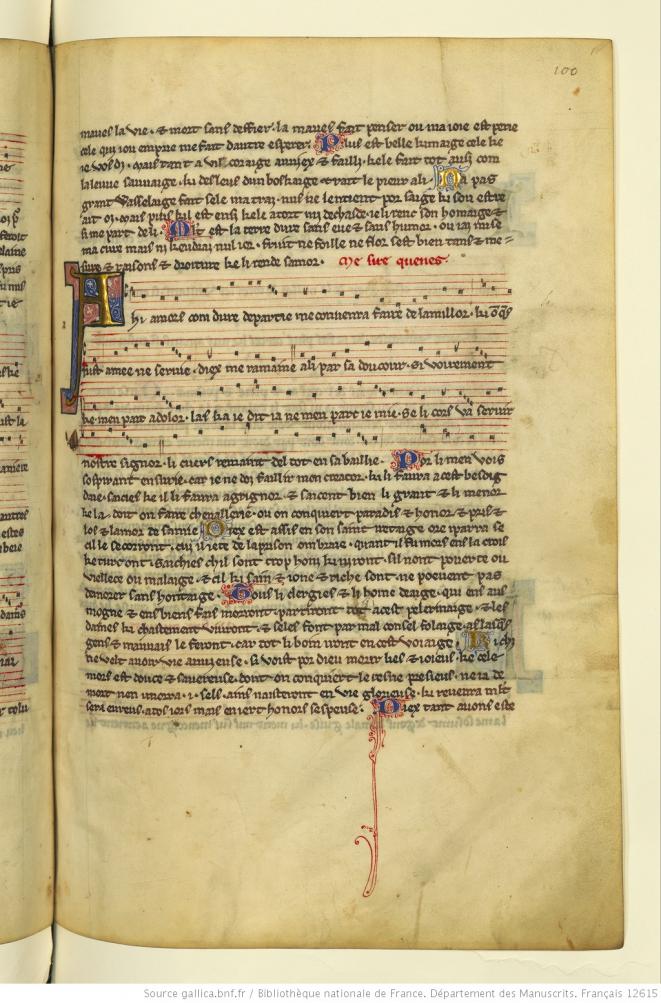 100
maues la vie · & mort sans deffier · la maues fait penser ou ma ioie est penie
cele qui iou empire me fait dautre esperer · Plus est belle kumaige cele ke
ie vos di · mais tant a vil coraige anuiex & failli · kele fait tot ausi com
la leuue sauuaige · ki des leus dun boskaige & trait le pieur a li · Na pas
grant vasselaige fait sele ma trai · nus ne le tient por saige ki son estre
ait oi · mais puis kil est ensi kele a tort mi dechasce · ie li renc son homaige &
si me part de li · Mlt est la terre dure sans eue & sans humor · ou iai mise
ma cure mais ni kendrai nul ior · fruit ne foille ne flor sest bien tans & me
sure & raisons & droiture ke li rende samor · Me sire quenes
Ahi amors com dure departie me conuenra faire de la millor · ki onqs
fust amee ne seruie · diex me ramaine a li par sa doucour · si voirement
ke men part a dolor · las ka ie dit ia ne men part ie mie · se li cors va seruir
nostre signor · li cuers remaint del tot en sa baillie · Por li men vois
sospirant en surie · car ie ne doi faillir mon creator · ki li faura a cest besoig
daie · sacies ke il li faura a grignor · & sacent bien li grant & li menor
ke la doit on faire cheualerie · ou on conquiert paradis & honor & pris &
los & lamor de samie Diex est assis en son saint iretaige ore i parra se
cil le secorront · cui il ieta de la prison ombraie · quant il fu mors ens la crois
ke turc ont · sachies chil sont trop honi ki niront · sil nont pouerte ou
viellece ou malaige · & cil ki sain & ione & riche sont · ne poeuent pas
demorer sans hontaige · Tous li clergies & li home deaige · qui ens aus
mogne & ens biens fais menront · partiront tot a cest pelerinaige · & les
dames ki chastement viuront · & seles font par mal consel folaige · as lasqs
gens & mauuais le feront · car tot li bon iront en cest voiaige · Ki chi
ne velt auoir vie anuieuse · si voist por dieu morir lies & ioieus · ke cele
mors est douce & sauereuse · dont on conquiert le resne presieus · ne ia de
mort nen morra · i · sels · ains naisteront en vie glorieuse · ki reuenra mlt
sera eureus · a tos iors mais en iert honors sespeuse · Diex tant auons este
Source gallica.bnf.fr / Bibliothèque nationale de France. Département des Manuscrits. Français 12615